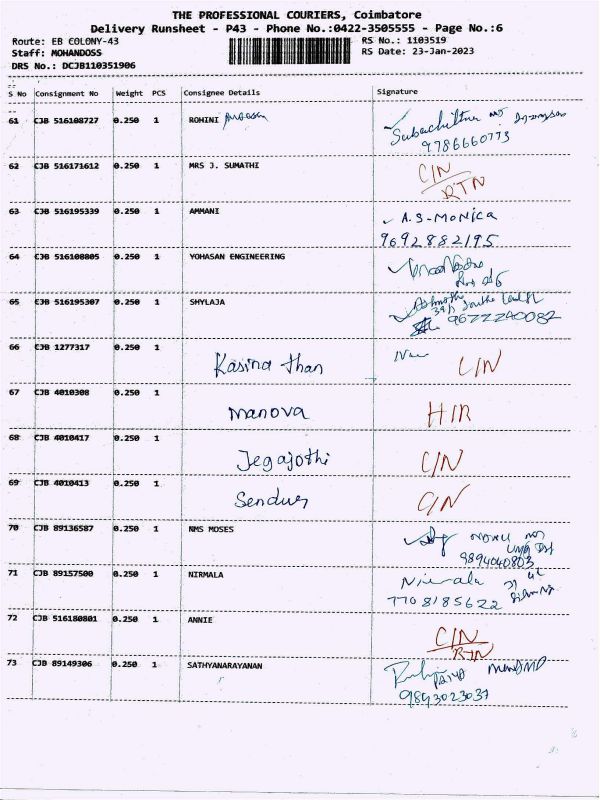 THE PROFESSIONAL COURIERS, Coimbatore
Delivery Runsheet - P43 - Phone No.:0422-3505555 - Page No.:6
Route: EB COLONY-43 RS No.: 1103519
Staff: MOHANDOSS RS Date: 23-Jan-2023
DRS No.: DCJB110351906
S No Consignment No Weight PCS Consignee Details Signature
61 CJB 516108727 0.250 1 ROHINI
9786660773
62 CJB 516171612 0.250 1 MRS J. SUMATHI C/N
RTN
63 CJB 516195339 0.250 1 AMMANI A.S-MONICA
9692882195
64 CJB 516108805 0.250 1 YOHASAN ENGINEERING
65 CJB 516195307 0.250 1 SHYLAJA
9622240082
66 CJB 1277317 0.250 1 Kasina than
67 CJB 4010308 0.250 1 Manova
68 CJB 4010417 0.250 1 Jegajothi C/N
69 CJB 4010413 0.250 1 C/N
70 CJB 89136587 0.250 1 NMS MOSES
9894040803
71 CJB 89157500 0.250 1 NIRMALA Nirmala
7708185622
72 CJB 516180801 0.250 1 ANNIE C/N
RTN
73 CJB 89149306 0.250 1 SATHYANARAYANAN
9893023037